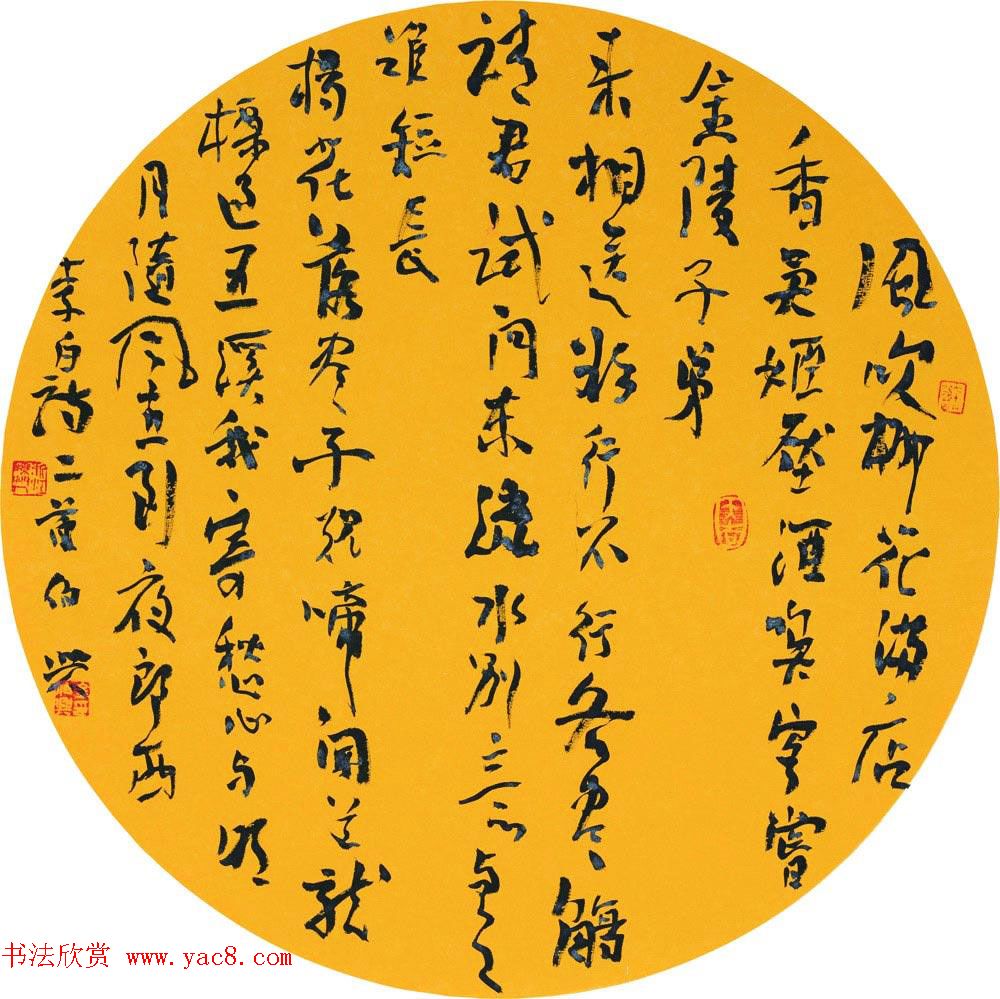 風吹柳花滿店
香吳姬壓酒喚客嘗
金陵子弟
来相送欲行不行各盡觴
請君試问东流水別意与之
誰短長
楊花落盡子規啼聞道龍
標過五溪我寄愁心与明
月隨風直到夜郎西
李白詩二首伯
书法欣赏 www.yac8.com